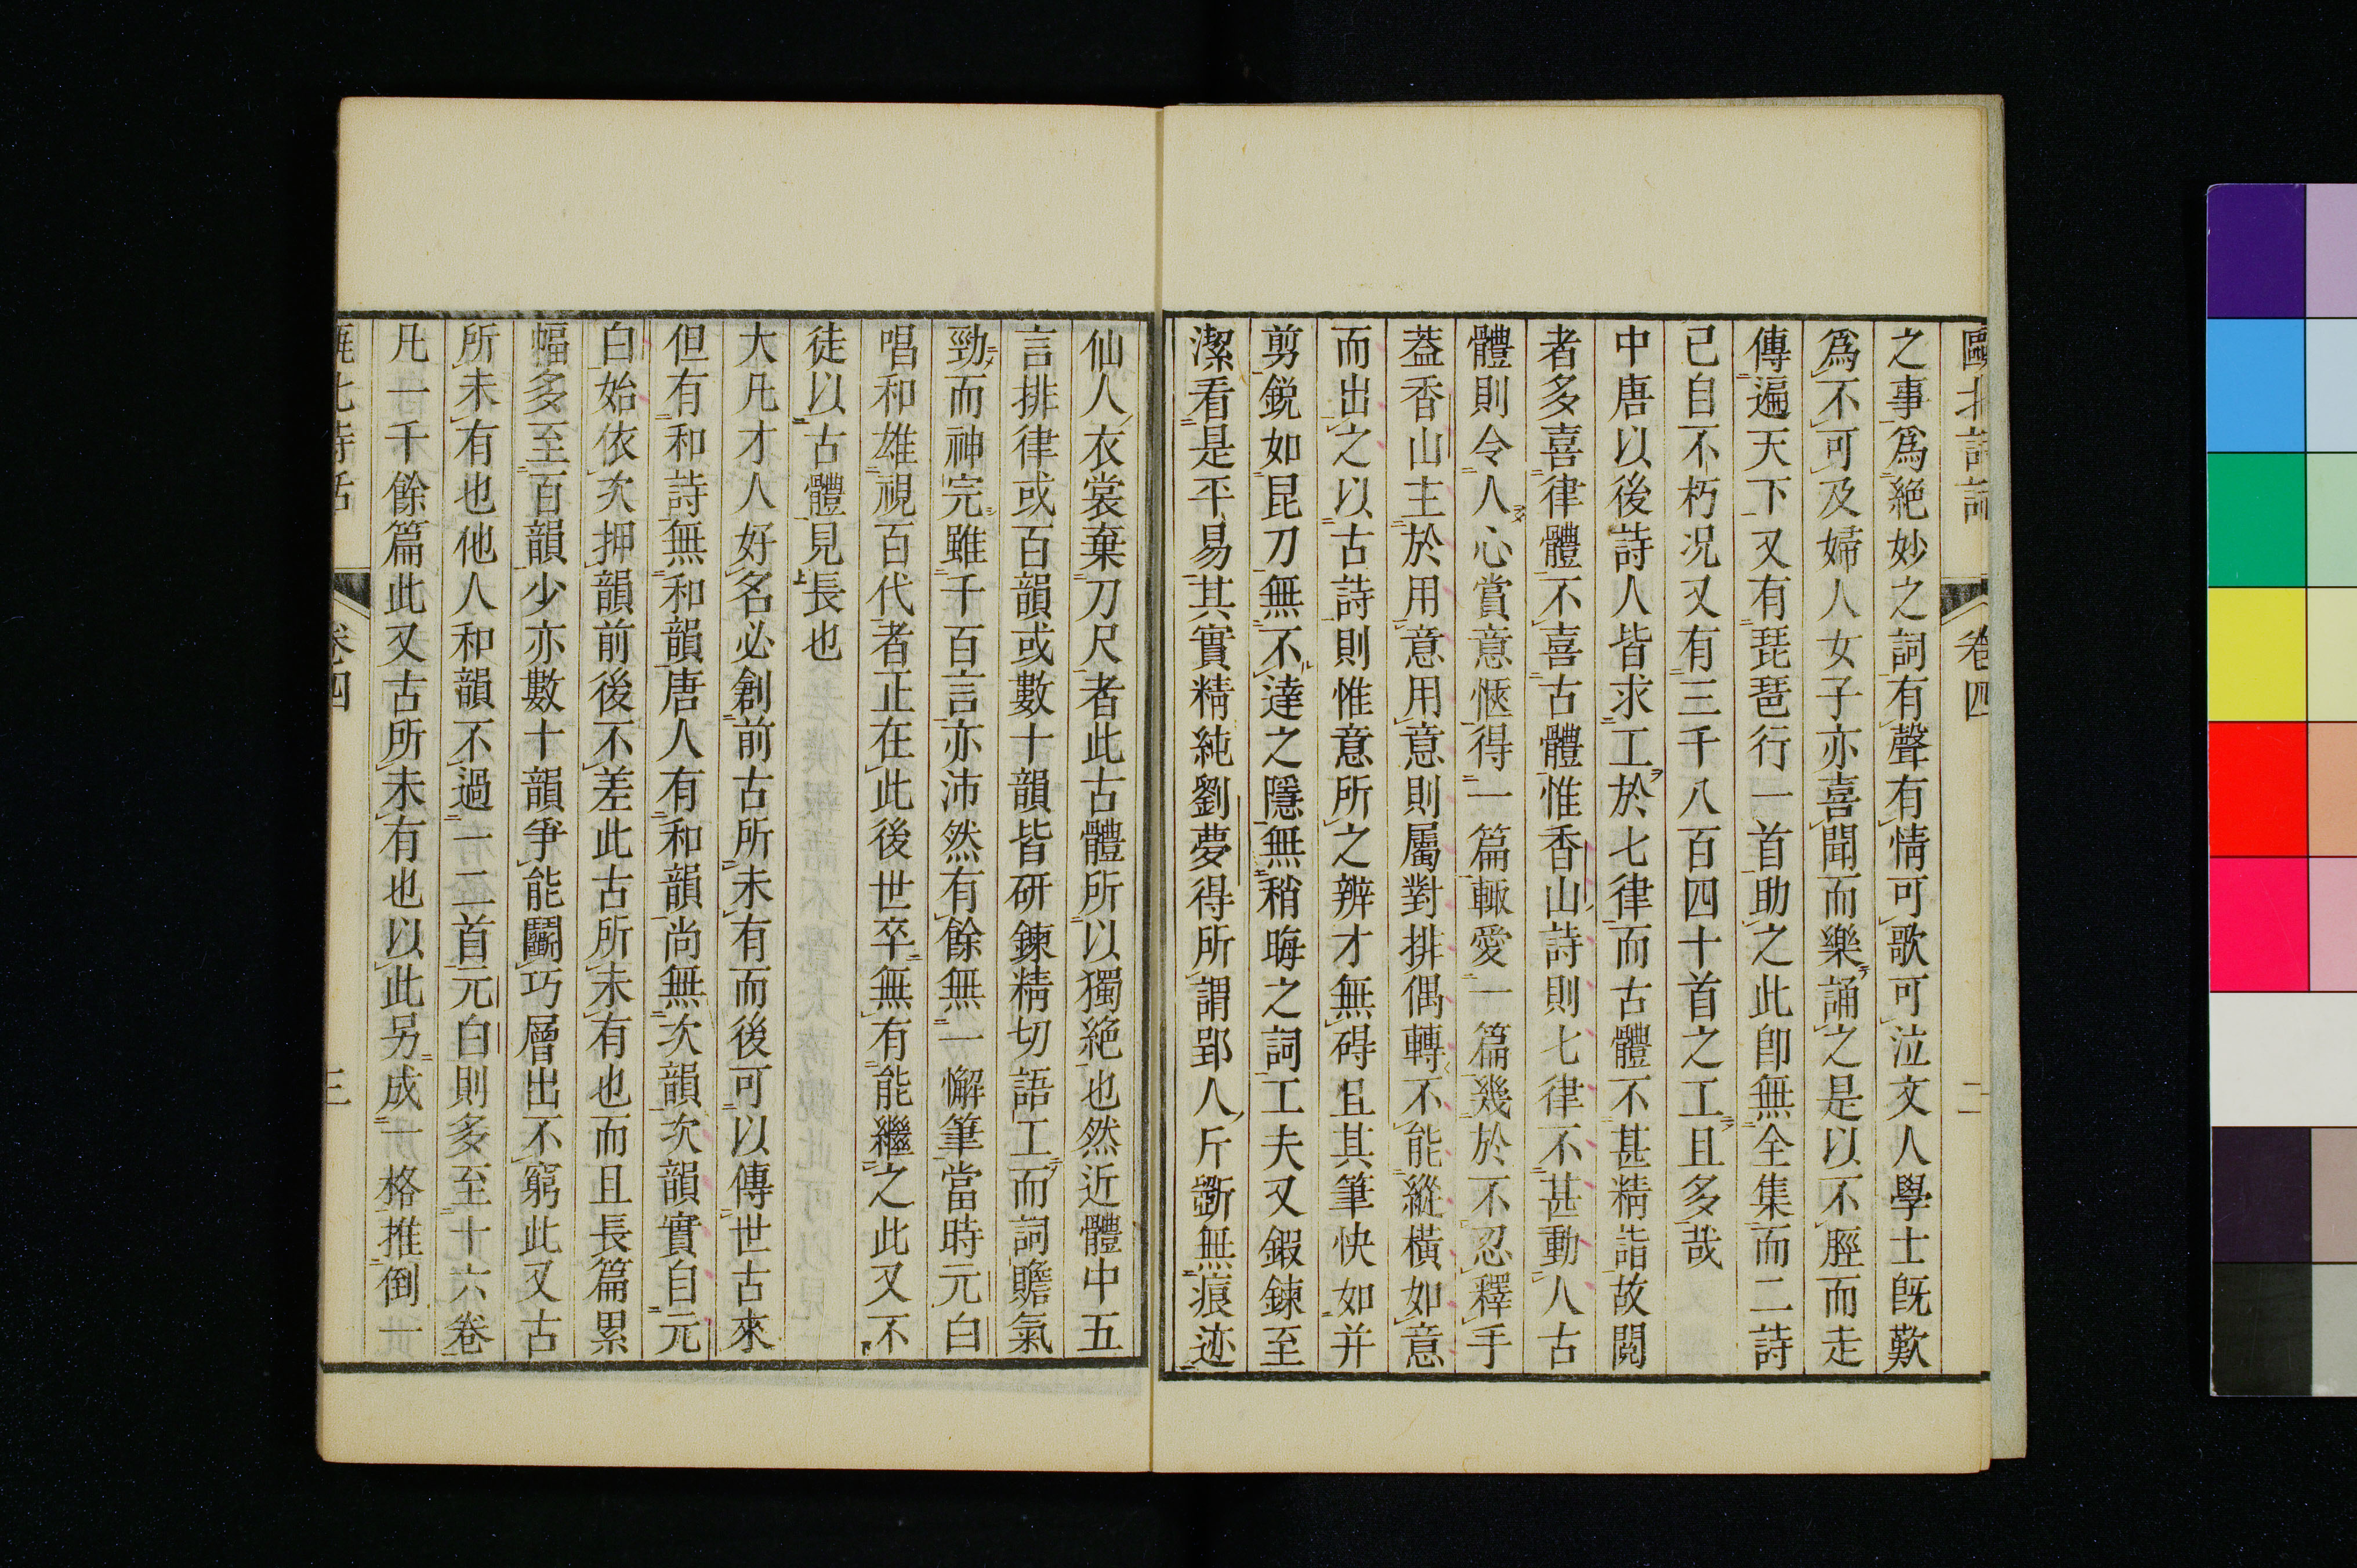 甌北詩話 卷四 二
之事爲絶妙之詞有聲有情可歌可泣文人學士既歎
爲不可及婦人女子亦喜聞而樂誦之是以不脛而走
傳遍天下又有琵琶行一首助之此卽無全集而二詩
已自不朽况又有三千八百四十首之工且多哉
中唐以後詩人皆求工於七律而古體不甚精詣故閲
者多喜律體不喜古體惟香山詩則七律不甚動人古
體則令人心賞意愜得一篇輒愛一篇幾於不忍釋手
葢香山主於用意用意則屬對排偶轉不能縱橫如意
而出之以古詩則惟意所之辨才無碍且其筆快如并
剪鋭如昆刀無不達之隱無稍晦之詞工夫又鍜鍊至
潔看是平易其實精純劉夢得所謂郢人斤斲無痕迹
仙人衣裳棄刀尺者此古體所以獨絶也然近體中五
言排律或百韻或數十韻皆研鍊精切語工而詞贍氣
勁而神完雖千百言亦沛然有餘無一懈筆當時元白
唱和雄視百代者正在此後世卒無有能繼之此又不
徒以古體見長也
大凡才人好名必創前古所未有而後可以傳世古來
但有和詩無和韻唐人有和韻尚無次韻次韻實自元
白始依次押韻前後不差此古所未有也而且長篇累
幅多至百韻少亦數十韻爭能鬭巧層出不窮此又古
所未有也他人和韻不過一二首元白則多至十六卷
凡一千餘篇此又古所未有也以此另成一格推倒一
甌北詩話 卷四 三